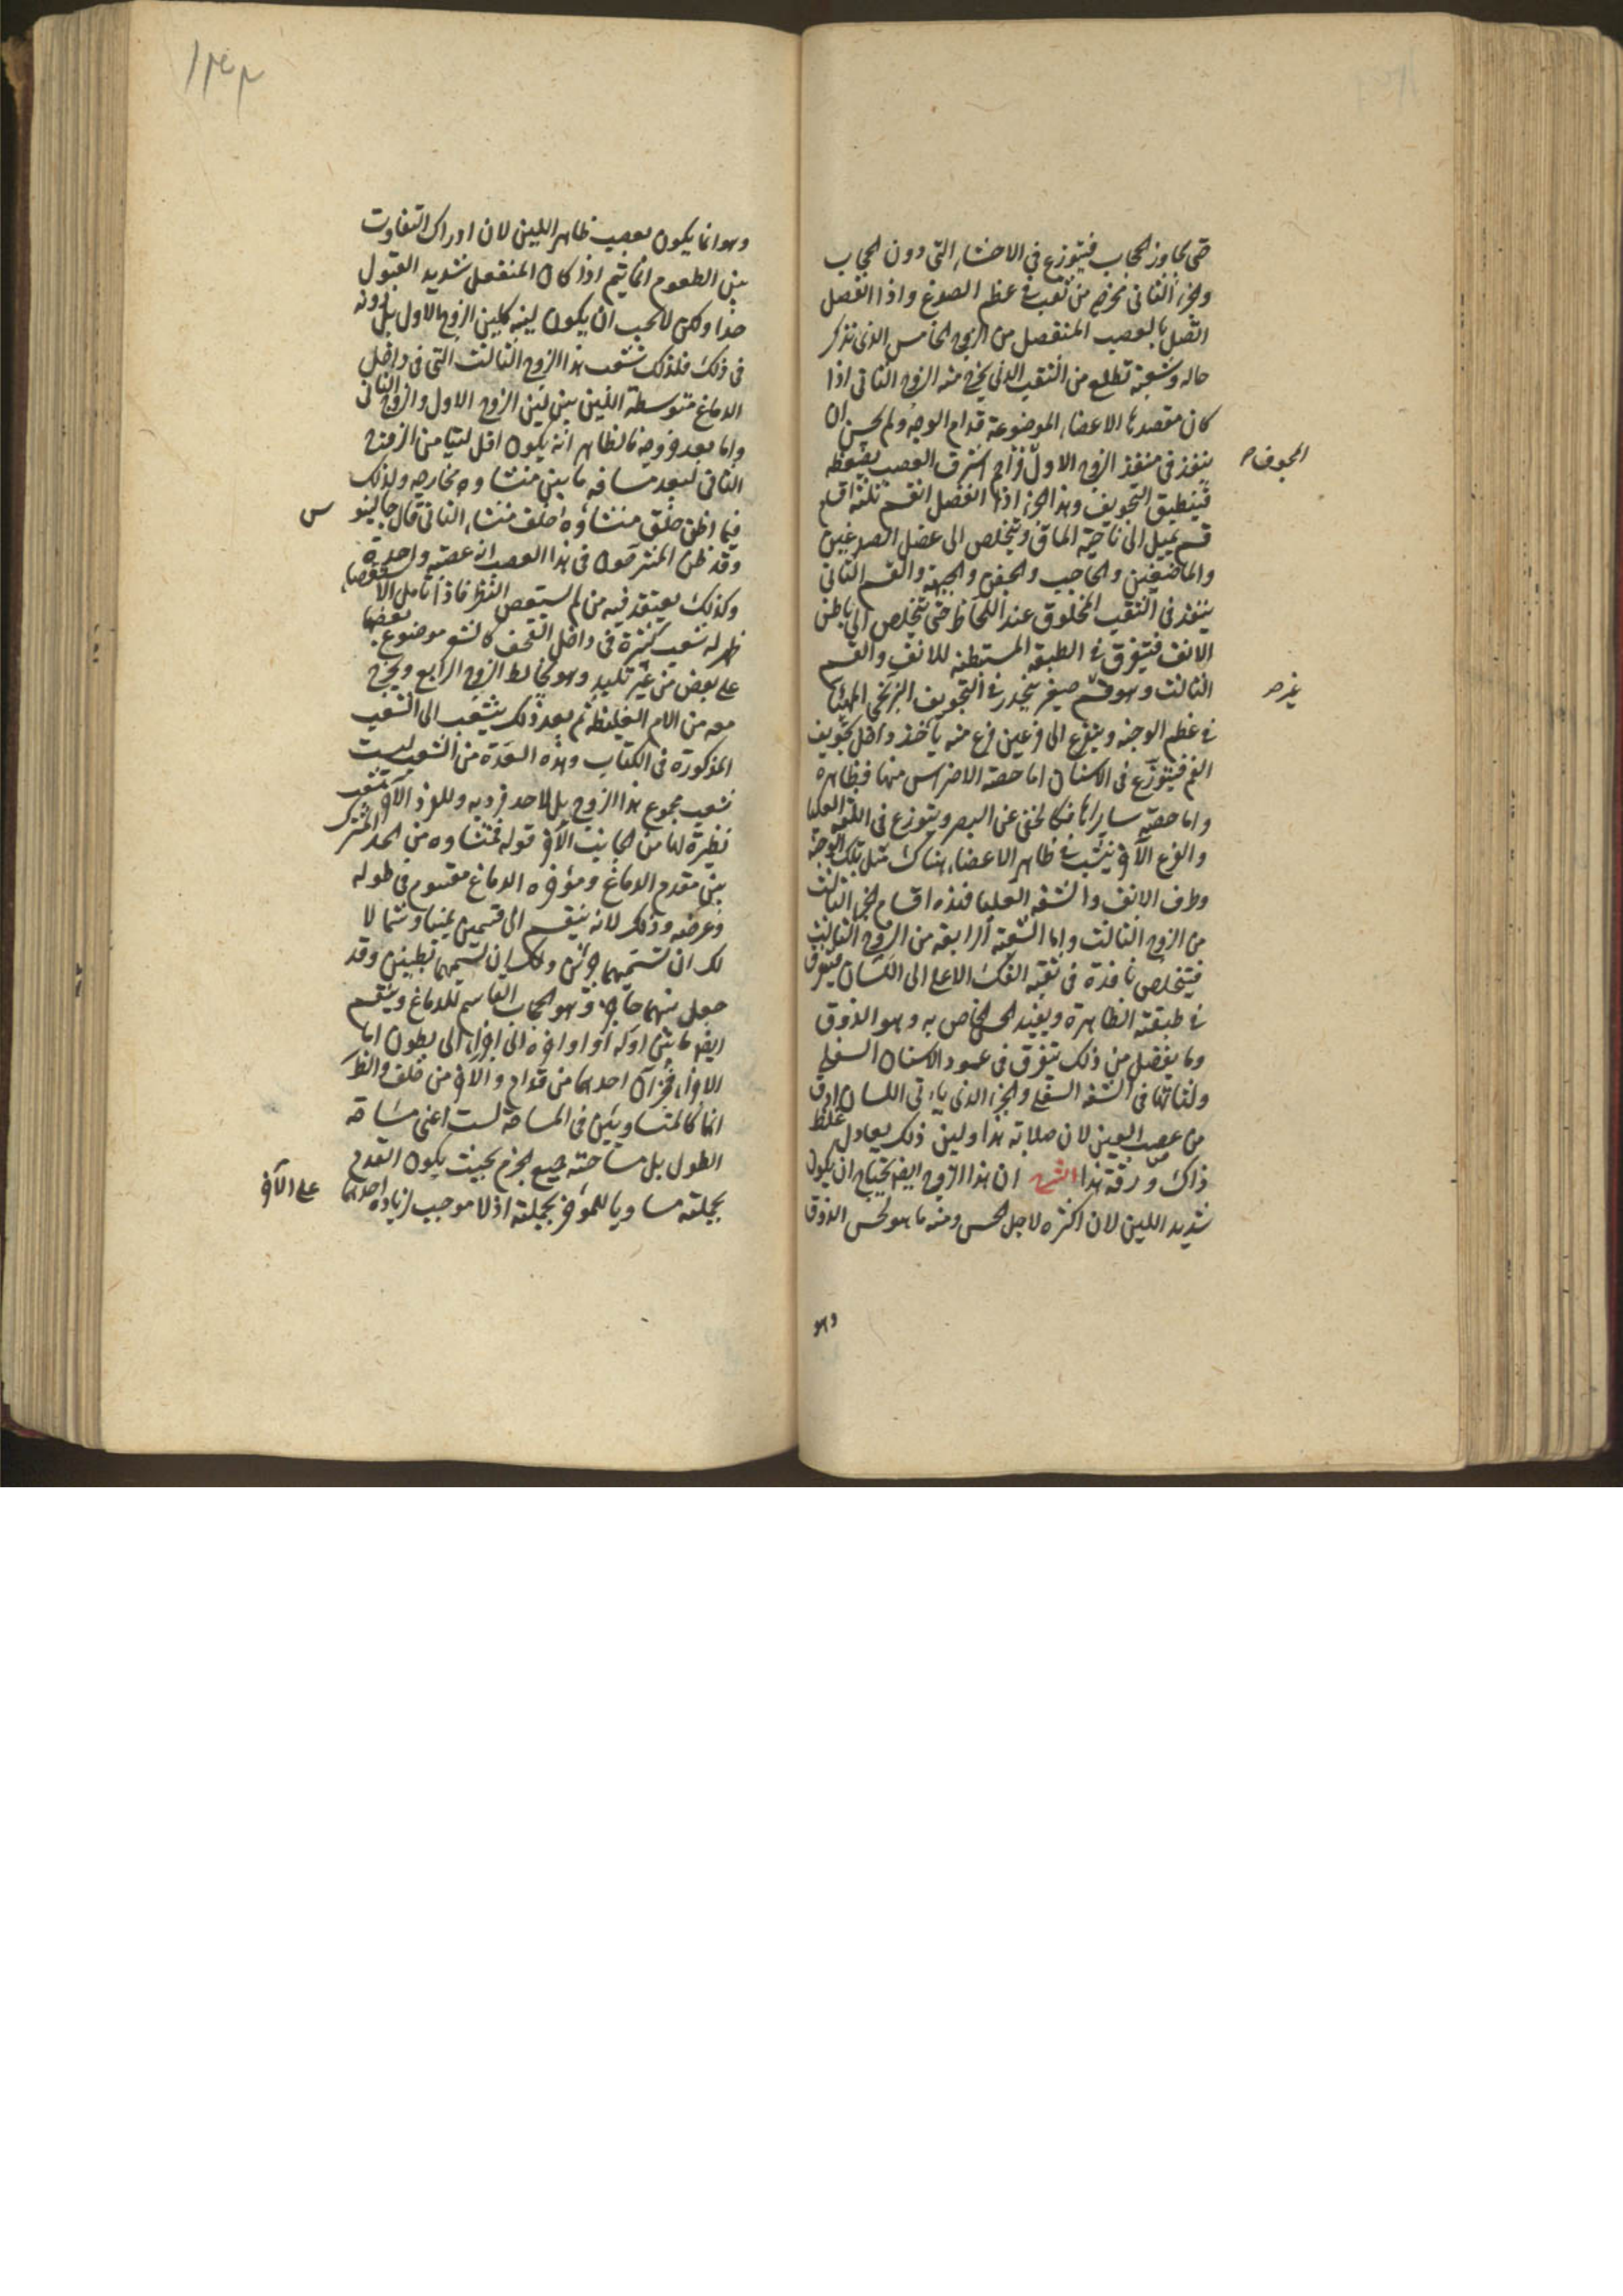 حتى يجاوز الحجاب فيتوزع في الاحشاء التي دون الحجاب
والجزء الثاني مخرجه من ثقب في عظم الصدغ واذا انفصل
اتصل بالعصب المنفصل من الزوج الخامس الذي نذكر
حاله وشعبة تطلع من الثقب الذي يخرج منه الزوج الثاني اذا
كان مقصدها الاعضاء الموضوعة قدام الوجه ولم يحسن ان
ينفذ في منفذ الزوج الاول فزاحم اشرف العصب بضغطه
المجوف
فينطبق التجويف وهذا الجزء اذا انفصل انقسم ثلثة اقسام
قسم يميل الى ناحية الماق ويتخلص الى عضل الصدغين
والماضغين والحاجب والجفن والجبهة والقسم الثاني
ينفذ في الثقب المخلوق عند اللحاظ حتى يتخلص الى باطن
الانف فيتفرق في الطبقة المستبطنة للانف والقسم
الثالث وهو قسم صغير ينحدر في التجويف البربخي المهيا
في عظم الوجنه ويتفرع الى فرعين فرع منه يأخذ داخل تجويف
الفم فيتوزع في الاسنان اما حصة الاضراس منها فظاهره
واما حصة سايرها فكالخفي عن البصر ويتوزع في اللثه العليا
والفرع الآخر ينبث في ظاهر الاعضاء هناك مثل جلد الوجنه
وطرف الانف والشفه العليا فهذه اقسام الجزء الثالث
من الزوج الثالث واما الشعبة الرابعة من الزوج الثالث
فيتخلص نافذة في ثقبة الفك الاعلى الى اللسان فيتفرق
في طبقته الظاهرة ويفيد الحس الخاص به وهو الذوق
وما يفضل من ذلك يتفرق في عمود الاسنان السفلى
ولثاتها في الشفه السفلى والجزء الذي يأتي اللسان ادق
من عصب العين لان صلابة هذا ولين ذلك يعادل غلظ
ذاك ورقة هذا الشرح ان هذا الزوج ايضا يحتاج ان يكون
شديد اللين لان اكثره لاجل الحس ومنه ما هو لحس الذوق
وهو
وهو انما يكون بعصب ظاهر اللين لان ادراك التفاوت
بين الطعوم انما يتم اذا كان المنفعل شديد القبول
جدا ولكن لا يجب ان يكون لينه كلين الزوج الاول بل دونه
في ذلك فلذلك شعب هذا الزوج الثالث التي في داخل
الدماغ متوسطة اللين بين لين الزوج الاول والزوج الثاني
واما بعد خروجه فالظاهر انه يكون اقل لينا من الزوج
الثاني لبعد مسافة ما بين منشاوه ومخارجه ولذلك
فيما اظن خلق منشاوه خلف منشاء الثاني قال جالينوس
وقد ظن المشرحون في هذا العصب انه عصبة واحدة
وكذلك يعتقد فيه من لم يستقص النظر فاذا تامل الاستقصاء
ظهر له شعب كثيرة في داخل القحف كالشعر موضوع بعضها
على بعض من غير تلبيد وهو يخالط الزوج الرابع ويخرج
معه من الام الغليظة ثم بعد ذلك يتشعب الى الشعب
المذكورة في الكتاب وهذه العدة من الشعب ليست
تشعب مجموع هذا الزوج بل لاحد فرديه وللفرد الآخر شعب
نظيرة لها من الجانب الآخر قوله فمنشاوه من الحد المشترك
بين مقدم الدماغ ومؤخره الدماغ مقسوم في طوله
وعرضه وذلك لانه ينقسم الى قسمين يمينا وشمالا
لك ان تسميهما جزئين ولك ان تسميهما بطنين وقد
جعل بينهما حاجز وهو الحجاب القاسم للدماغ وينقسم
ايضا ما بين اوله الى اخره الى اجزاء الى بطون اما
الاجزاء فجزآن احدهما من قدام والآخر من خلف
انهما كالمتساويين في المساحه لست اعني مساحة
الطول بل مساحته جميع الجزم بحيث يكون المقدم
بجملته مساويا للمؤخر بجملته اذ لا موجب لزيادة احدهما
على الآخر